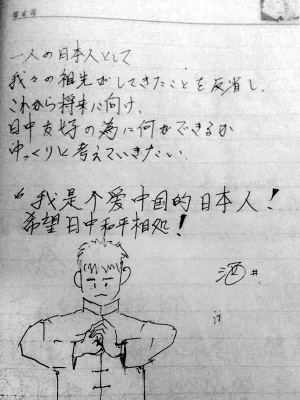 一人の日本人として
我々の祖先がしてきたことを反省し、
これから将来に向け、
日中友好の為に何ができるか
ゆっくりと考えていきたい。
"我是个爱中国的日本人！
希望日中和平相処！
酒井